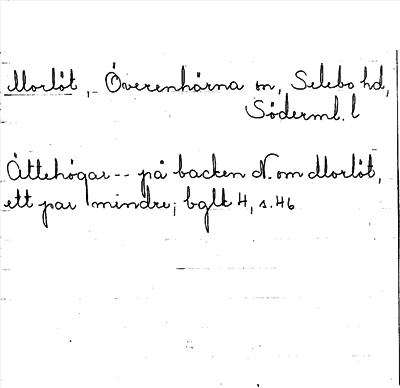 Morlöt, Överenhörna sn, Selebo hd,
Söderml. l
Ättehögar -- på backen N. om Morlöt,
ett par mindre; bglt 4, s. 46